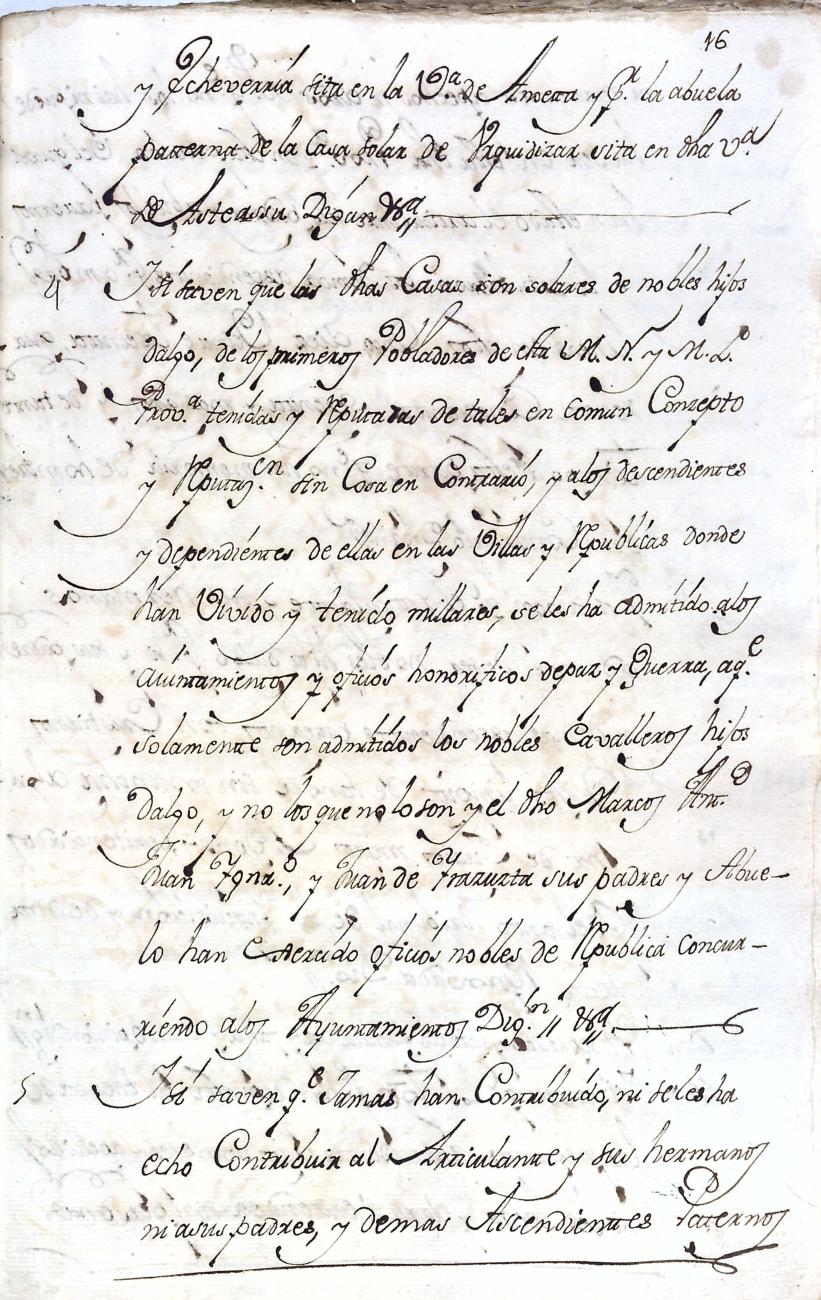 16
y Echeverria sita en la V.ª de Amezta y P.r la abuela
paterna de la Casa solar de Urquidizar sita en dha V.ª
de Asteassu Digan &ª
4 Y si saven que las dhas Casas son solares de nobles hijos
dalgo, de los primeros Pobladores de esta M. N. y M. L.
Prov.ª tenidas y Reputadas de tales en comun Conzepto
y Reputaz.en sin Cosa en Contrario, y a los descendientes
y dependientes de ellas en las Villas y Republicas donde
han Vivido y tenido millares, se les ha admitido a los
aiuntamientos y oficios honorificos de paz y Guerra, a q.e
solamente son admitidos los nobles Cavalleros hijos
Dalgo, y no los que no lo son y el dho Marcos Ant.º
Juan Ygna.º, y Juan de Yrazuzta sus padres y Abue-
lo han exercido oficios nobles de Republica concur-
riendo a los Ayuntamientos Dig.n &ª
5 Y si saven q.e Jamas han Contribuido, ni se les ha
echo Contribuir al Articulante y sus hermanos
ni a sus padres, y demas Ascendientes Paternos